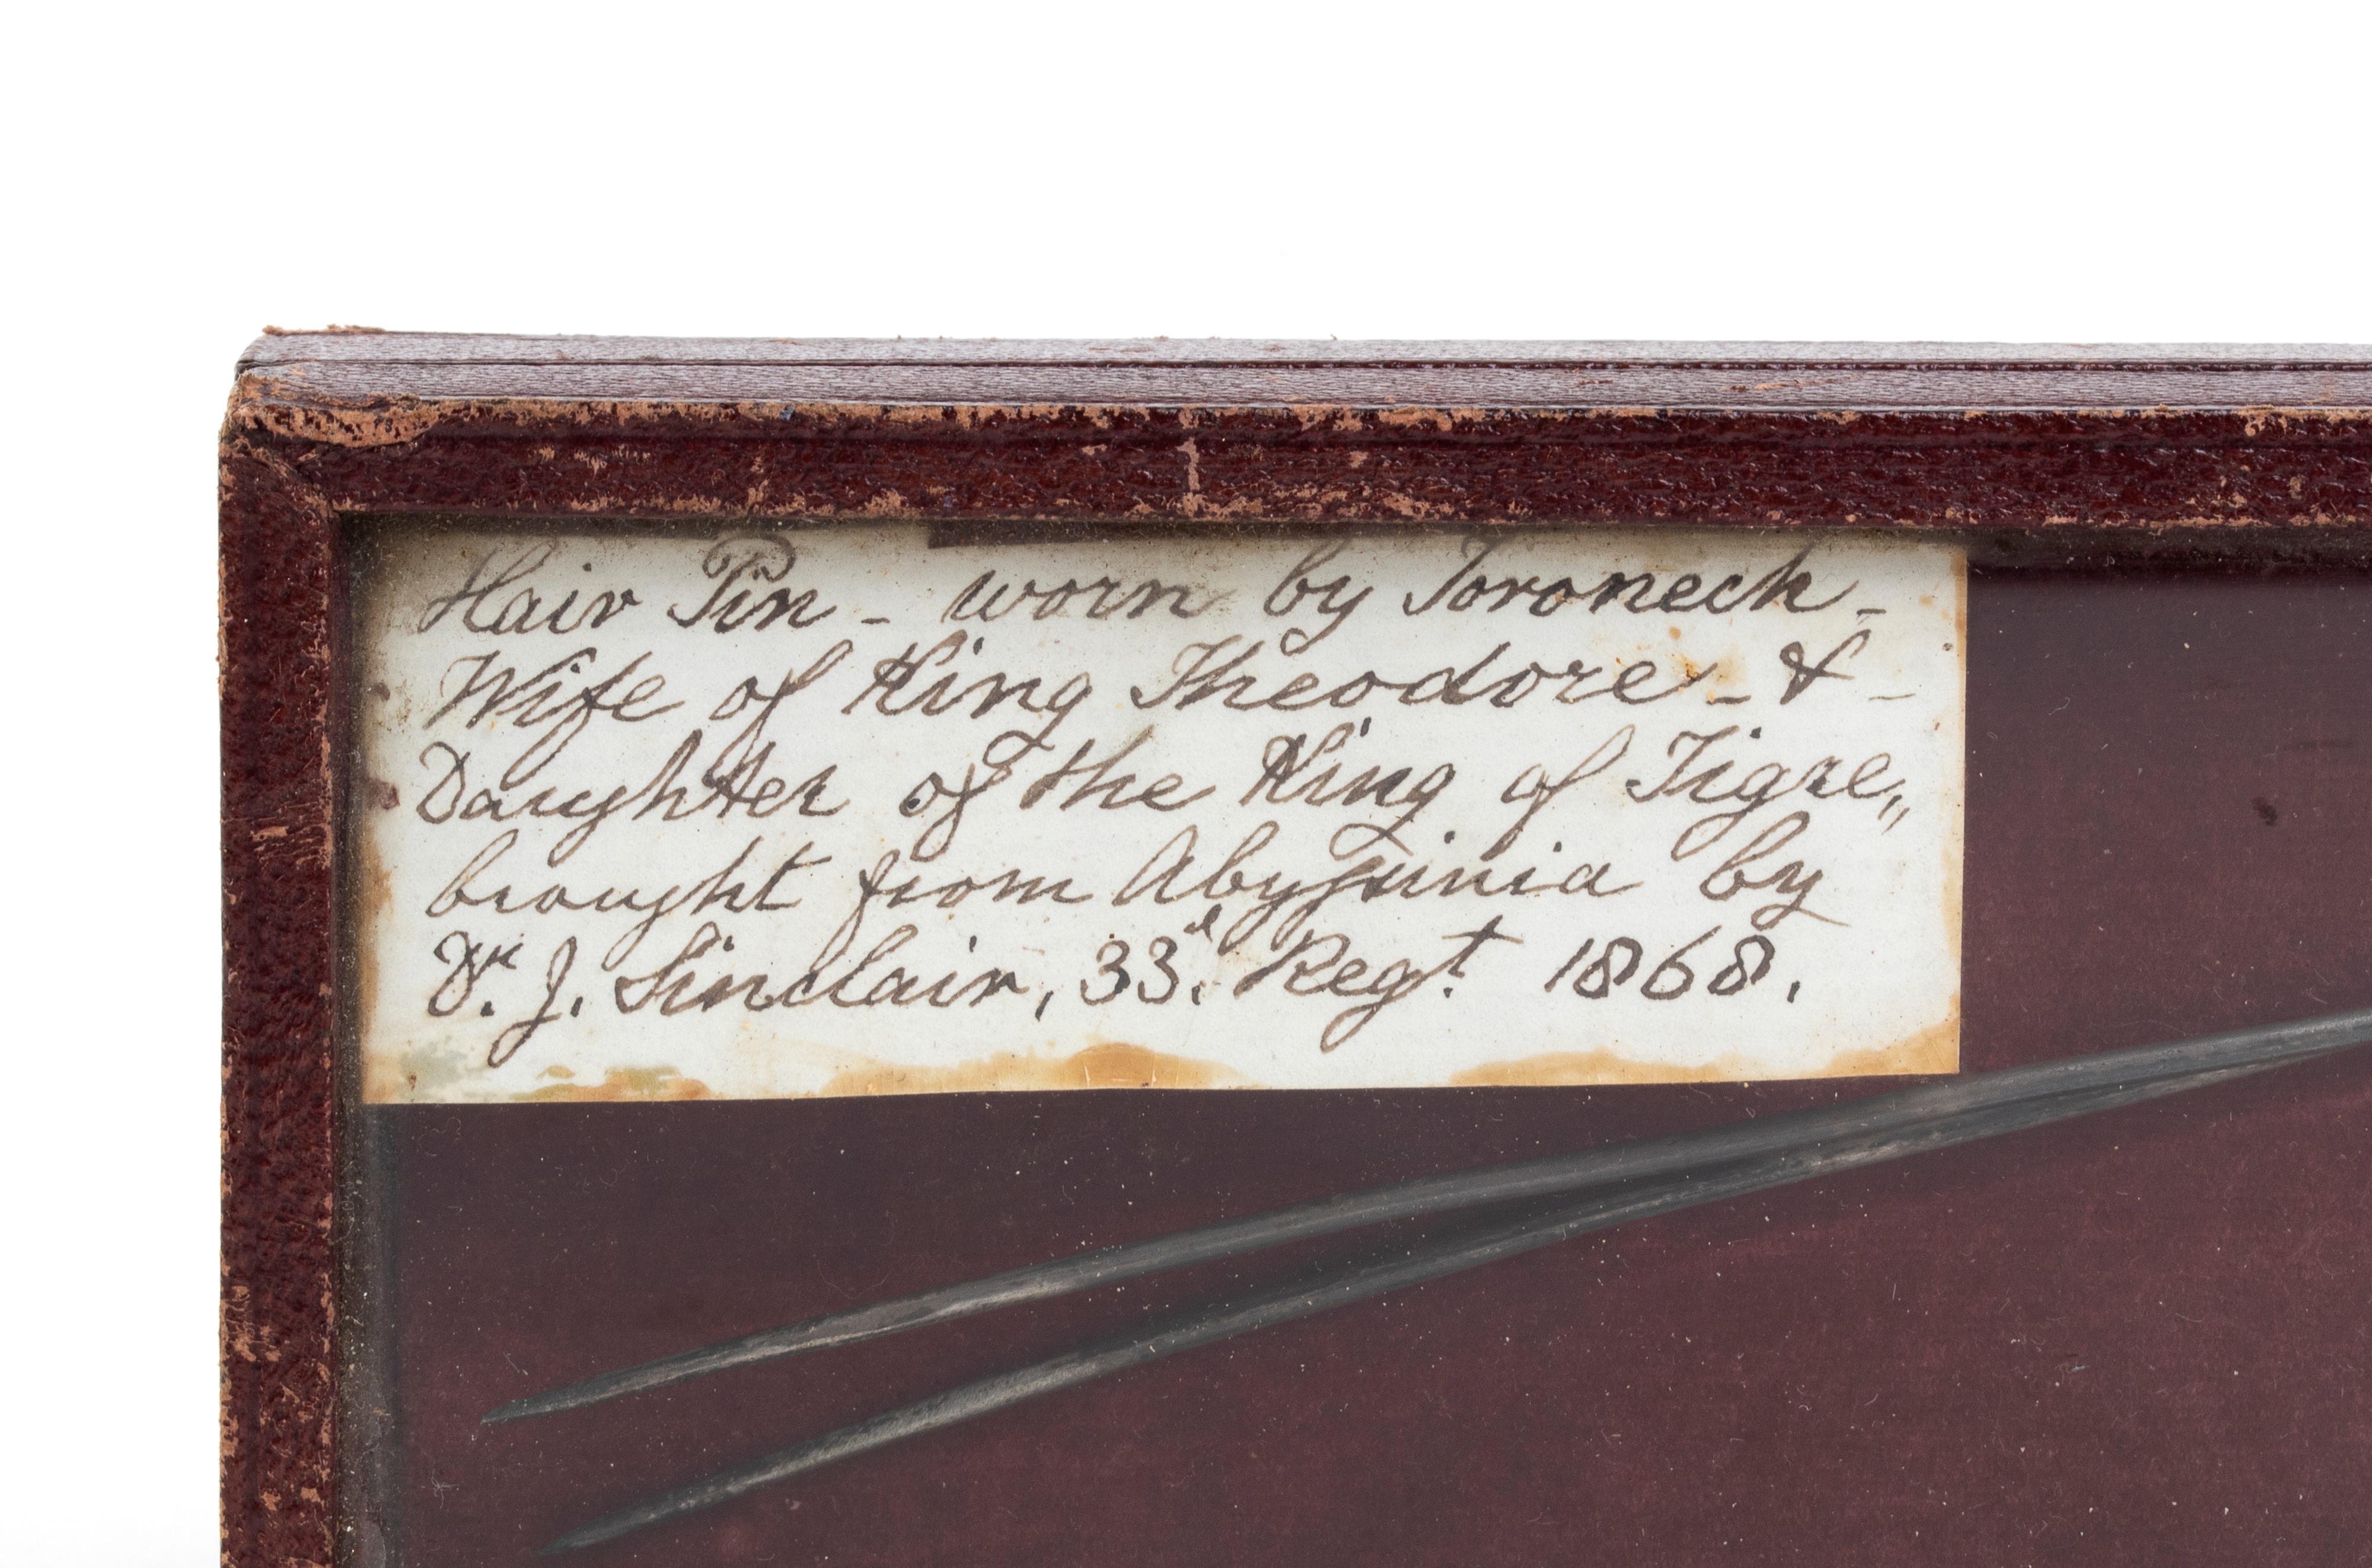 Hair Pin - worn by Toroneck -
Wife of King Theodore - & -
Daughter of the King of Tigre,,
brought from Abyssinia by
Dr. J. Sinclair, 33d. Regt. 1868.